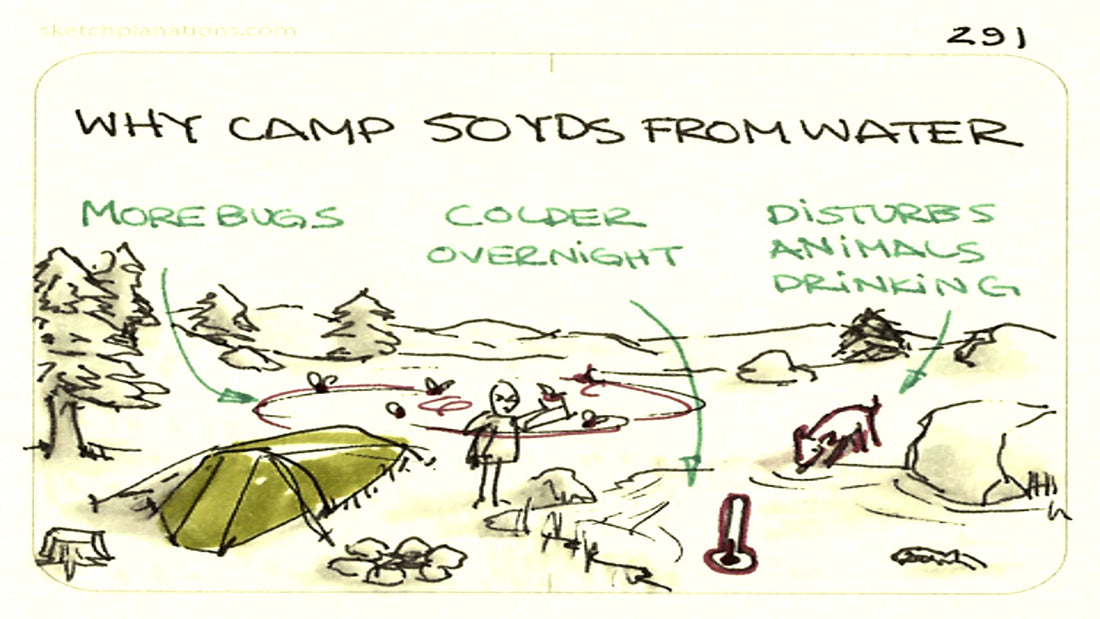 sketchplanations.com
291
WHY CAMP 50YDS FROM WATER
MORE BUGS
COLDER
OVERNiGHT
DiSTURBS
ANiMALS
DRiNKiNG